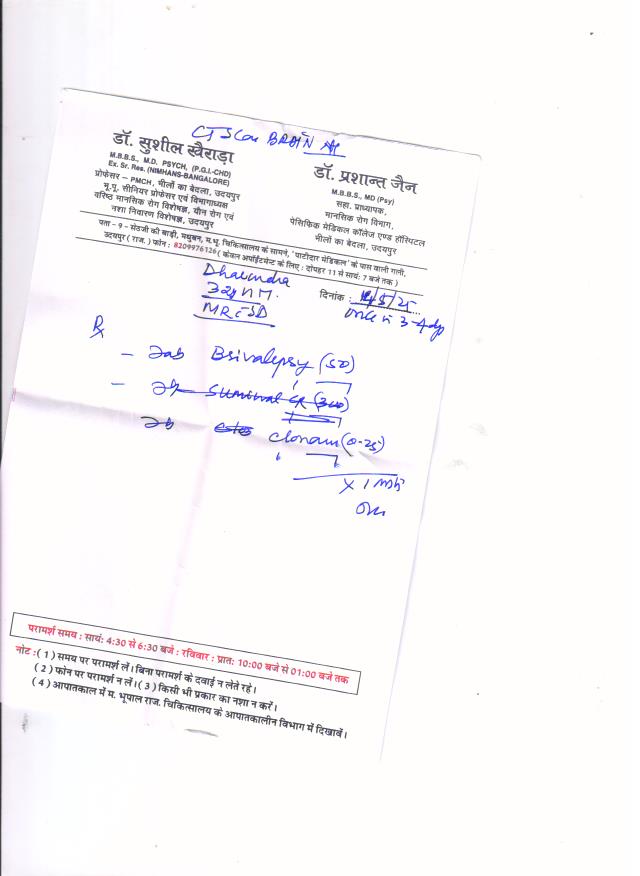 CT Scan BRAIN
डॉ. सुशील खैराड़ा
M.B.B.S., M.D. PSYCH, (P.G.I.-CHD)
Ex. Sr. Res. (NIMHANS-BANGALORE)
प्रोफेसर – PMCH, भीलों का बेदला, उदयपुर
भू.पू. सीनियर प्रोफेसर एवं विभागाध्यक्ष
वरिष्ठ मानसिक रोग विशेषज्ञ, यौन रोग एवं
नशा निवारण विशेषज्ञ, उदयपुर
डॉ. प्रशान्त जैन
M.B.B.S., MD (Psy)
सहा. प्राध्यापक,
मानसिक रोग विभाग,
पेसिफिक मेडिकल कॉलेज एण्ड हॉस्पिटल
भीलों का बेदला, उदयपुर
पता – 9 - सेठजी की बाड़ी, मधुबन, म.भू. चिकित्सालय के सामने, 'पाटीदार मेडिकल' के पास वाली गली,
उदयपुर ( राज. ) फोन : 8209976126 ( केवल अपॉइंटमेन्ट के लिए : दोपहर 11 से सायं: 7 बजे तक )
दिनांक :
/5/25
32y M.
MR
℞
Brivalepsy (50)
(300)
Clonam (0.25)
x 1
परामर्श समय : सायं: 4:30 से 6:30 बजे : रविवार : प्रात: 10:00 बजे से 01:00 बजे तक
नोट : ( 1 ) समय पर परामर्श लें। बिना परामर्श के दवाई न लेते रहे।
( 2 ) फोन पर परामर्श न लें। ( 3 ) किसी भी प्रकार का नशा न करें।
( 4 ) आपातकाल में म. भूपाल राज. चिकित्सालय के आपातकालीन विभाग में दिखावें।